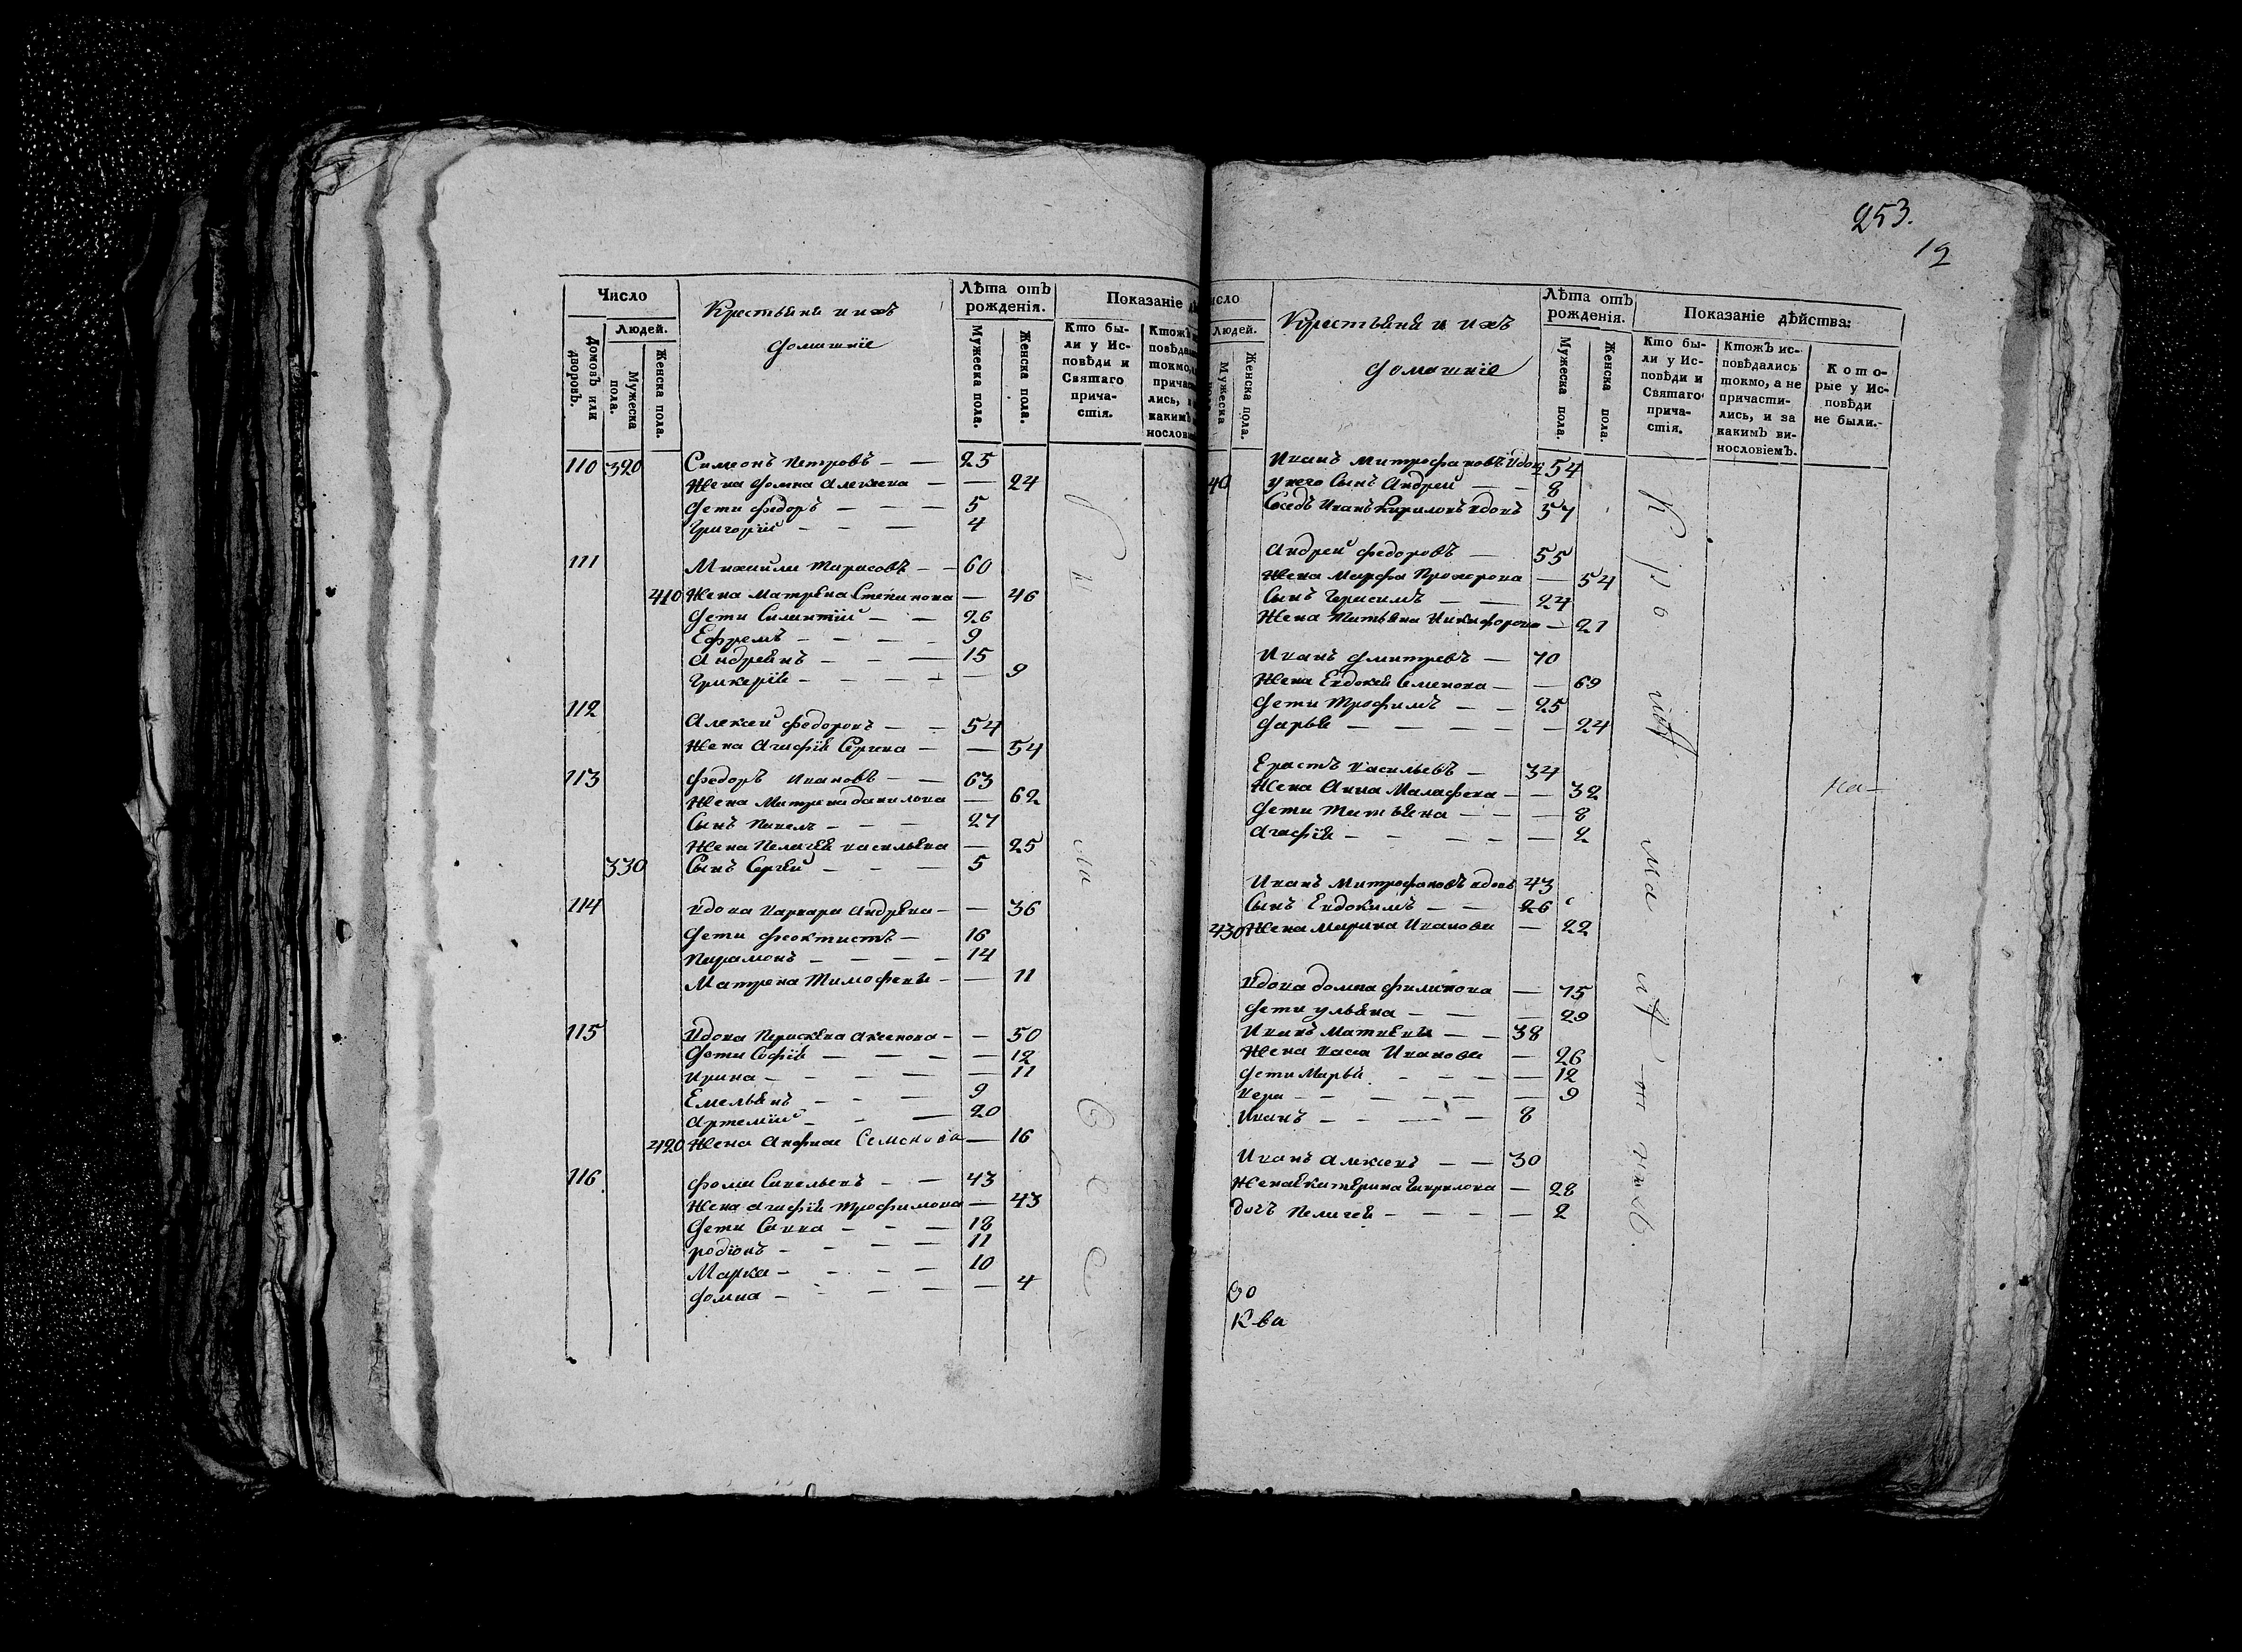 Число
Людей.
Домовъ или дворовъ.
Мужеска пола.
Женска пола.
Крестьяня и ихъ
домашніе
Лѣта отъ рожденія.
Мужеска пола.
Женска пола.
Показаніе
Кто бы-
ли у Ис-
повѣди и
Святаго
прича-
стія.
110 320 Симеонъ Петровъ — — 25
Жена домна Алексѣева — — 24
Дети федоръ — — — 5
Григорій — — — 4
111 Михаила Тарасовъ — — 60
410 Жена Матрена Степанова — 46
Дети Силантій — — 26
Ефремъ — — — — 9
Андреянъ — — — 15
Гликерія — — — — — 9
112 Алексей федоровъ — — 54
Жена Агафія Сергива — — 54
113 федоръ Ивановъ — — 63
Жена Матрена данилова — 62
Сынъ Павелъ — — — 27
Жена Пелагея васильева — 25
330 Сынъ Сергей — — — 5
114 вдова варвара Андрева — — 36
Дети феоктистъ — 16
Парамонъ — — — — 14
Матрена Тимофева — — 11
115 вдова Параскева Аксенова — — 50
Дети Софія — — — — 12
Ирина — — — — — 11
Емельянъ — — — 9
Артемій — — — 20
420 Жена Анфиса Семенова — 16
116 фома Савельевъ — — 43
Жена Агафія Трофимова — 43
Дети Савва — — — 18
родіонъ — — — — 11
Марка — — — — 10
домна — — — — — 4
253.
12
Людей.
Мужеска
Женска пола.
Крестьяня и ихъ
домашніе
Лѣта отъ рожденія.
Мужеска пола.
Женска пола.
Показаніе дѣйства:
Кто бы-
ли у Ис-
повѣди и
Святаго
прича-
стія.
Ктожъ ис-
повѣдались
токмо, а не
причасти-
лись, и за
какимъ ви-
нословіемъ.
Кото-
рые у Ис-
повѣди
не были.
Иванъ Митрофановъ вдовъ 54
40 у него Сынъ Андрей — — 8
Соседъ Иванъ Кириловъ вдовъ 57
Андрей федоровъ — 55
Жена Марфа Прохорова — 54
Сынъ Герасимъ — — 24
Жена Татьяна Никифорова — 21
Иванъ дмитревъ — 70
Жена Евдокея Семенова — — 69
Дети Трофимъ — — 25
Дарья — — — — — 24
Ерастъ васильевъ — 34
Жена Анна Малафева — — 32
Дети Татьяна — — — 8
Агафія — — — — — 2
Иванъ Митрофановъ вдовъ 43
Сынъ Евдокимъ — — 26
430 Жена Марина Иванова — 22
вдова домна филипова — 75
Дети ульяна — — — 29
Иванъ Матвеевъ — — 38
Жена васса Иванова — 26
Дети Марья — — — — 12
вера — — — — — — 9
Иванъ — — — — 8
Иванъ Алексевъ — — 30
Жена Екатерина Гаврилова — 28
дочь Пелагея — — — — 2